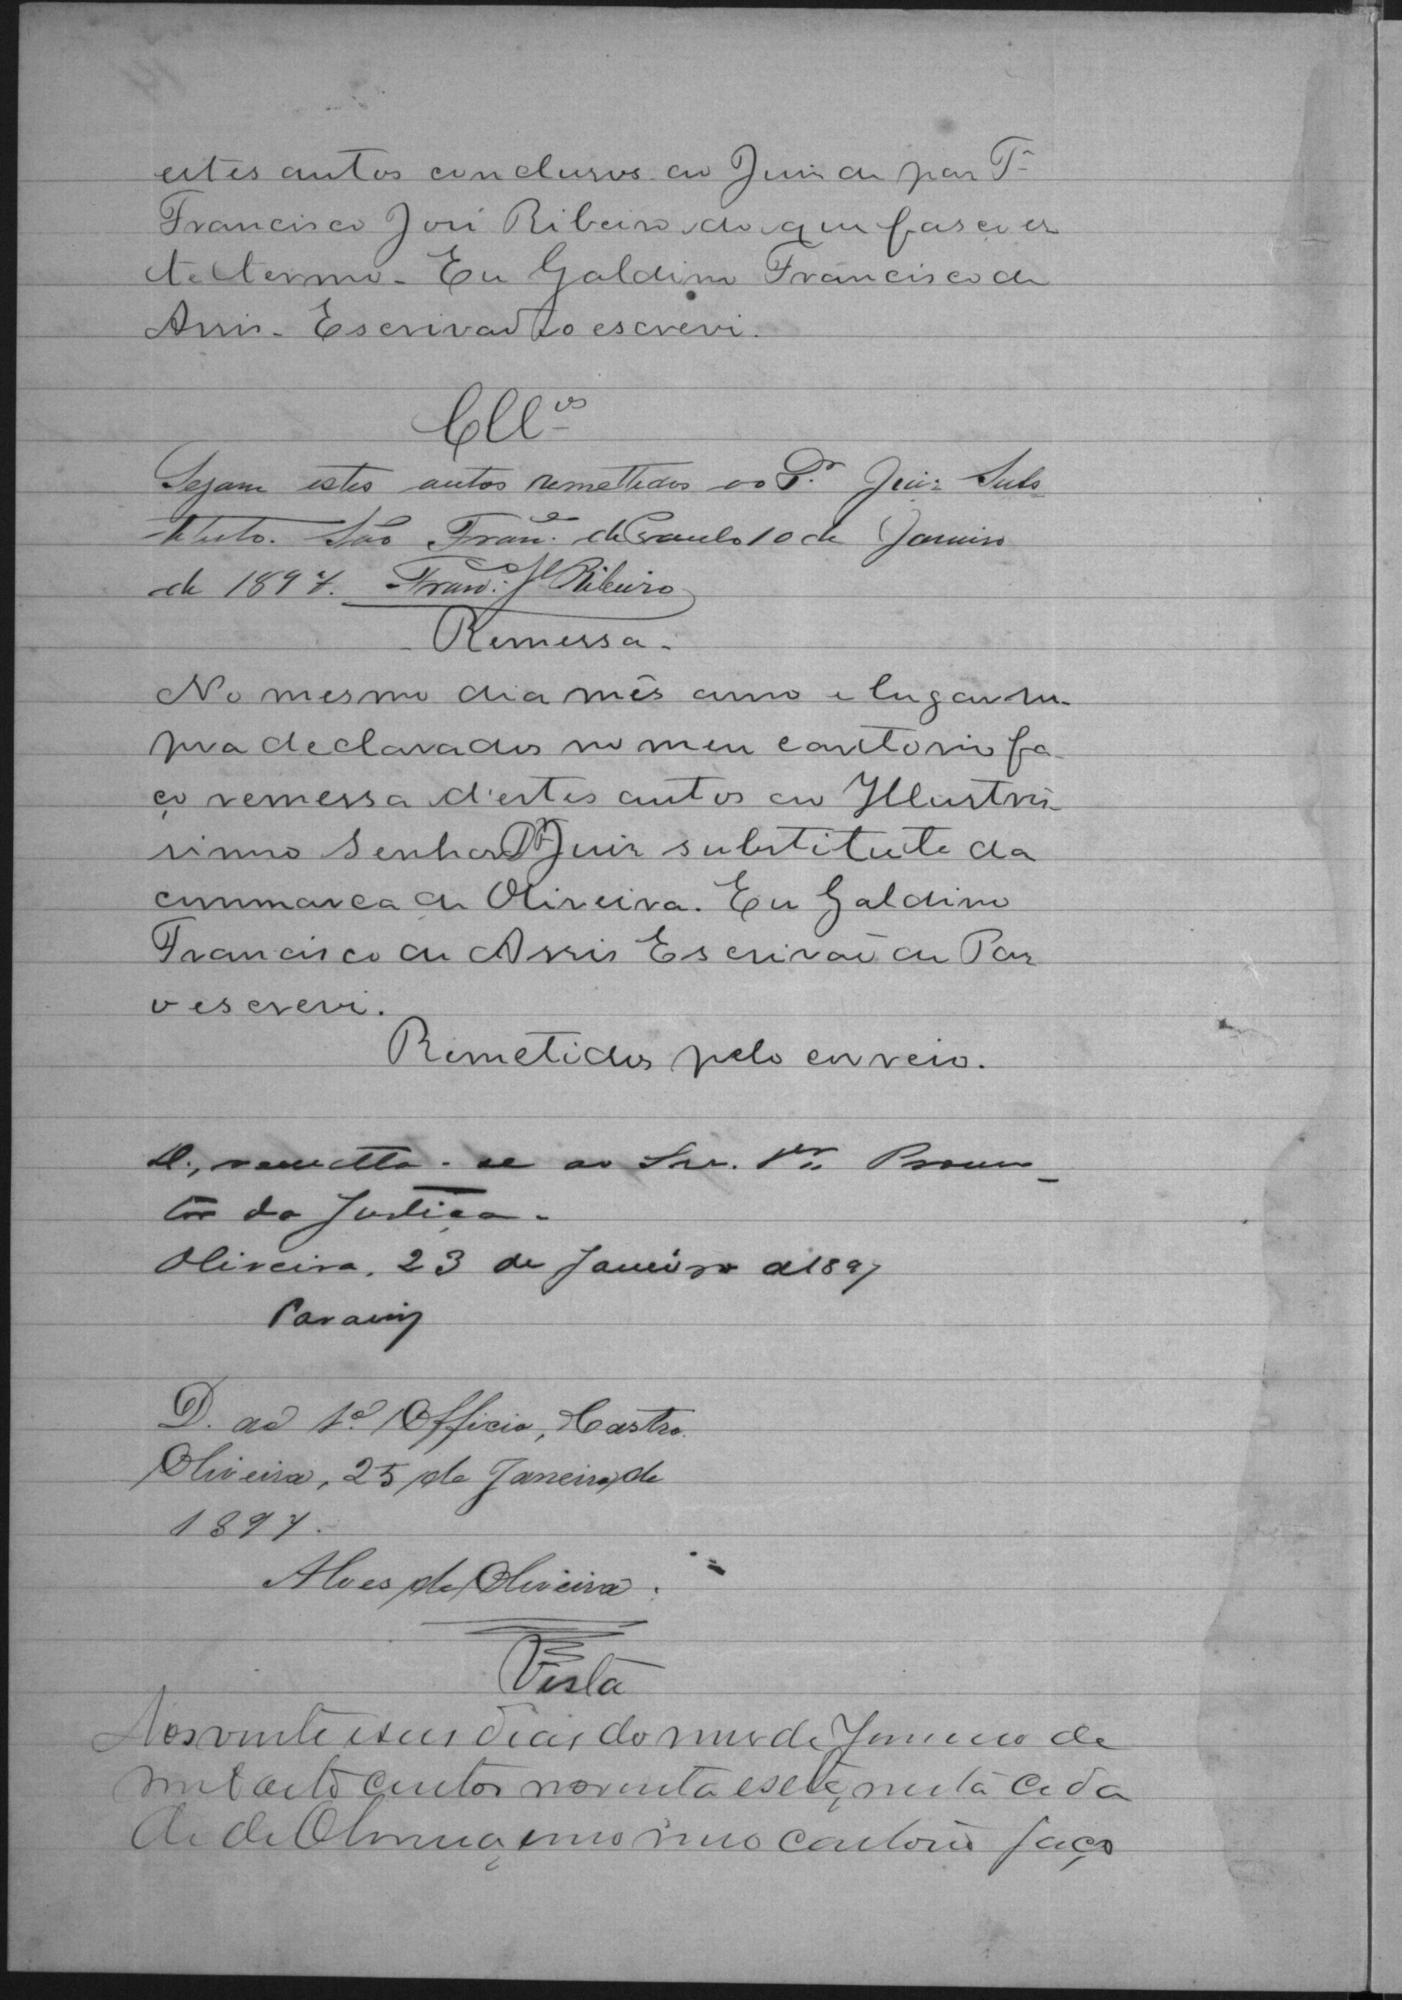 estes autos conclusos ao Juiz de paz T.e
Francisco José Ribeiro do que faço es
te termo. Eu Galdino Francisco de
Assis. Escrivão o escrevi.
Cll.os
Sejam estes autos remettidos ao D.r Juiz Subs
tituto. São Fran.co de Paulo 10 de Janeiro
de 1897. Fran.co Jé Ribeiro
Remessa.
No mesmo dia mês anno e lugar su-
pra declarados no meu cartorio fa
ço remessa d'estes autos ao Illustris
simo Senhor D.r Juiz substituto da
cummarca de Oliveira. Eu Galdino
Francisco de Assis Escrivão de Paz
o escrevi.
Remetidos pelo correio.
D., remetta-se ao Snr. Dr. Promo-
tor da Justiça.
Oliveira, 23 de Janeiro de 1897
D. ao 1º Officio, Castro.
Oliveira, 25 de Janeiro de
1897.
Alves de Oliveira.
Vista
Aos vinte e seis dias do mes de Janeiro de
mil oito centos noventa e sete, nesta cida
de de Oliveira, em o meu cartorio faço